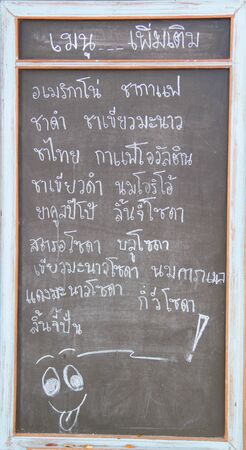 เมนู... เพิ่มเติม
อเมริกาโน่ ชากาแฟ
ชาดำ ชาเขียวมะนาว
ชาไทย กาแฟโอวัลติน
ชาเขียวดำ นมโอริโอ้
ยาคูลปีโป้ ลิ้นจี่โซดา
สตรอโซดา บลูโซดา
เขียวมะนาวโซดา นมคาราเมล
แดงมะนาวโซดา กีวี่โซดา
ลิ้นจี่ปั่น